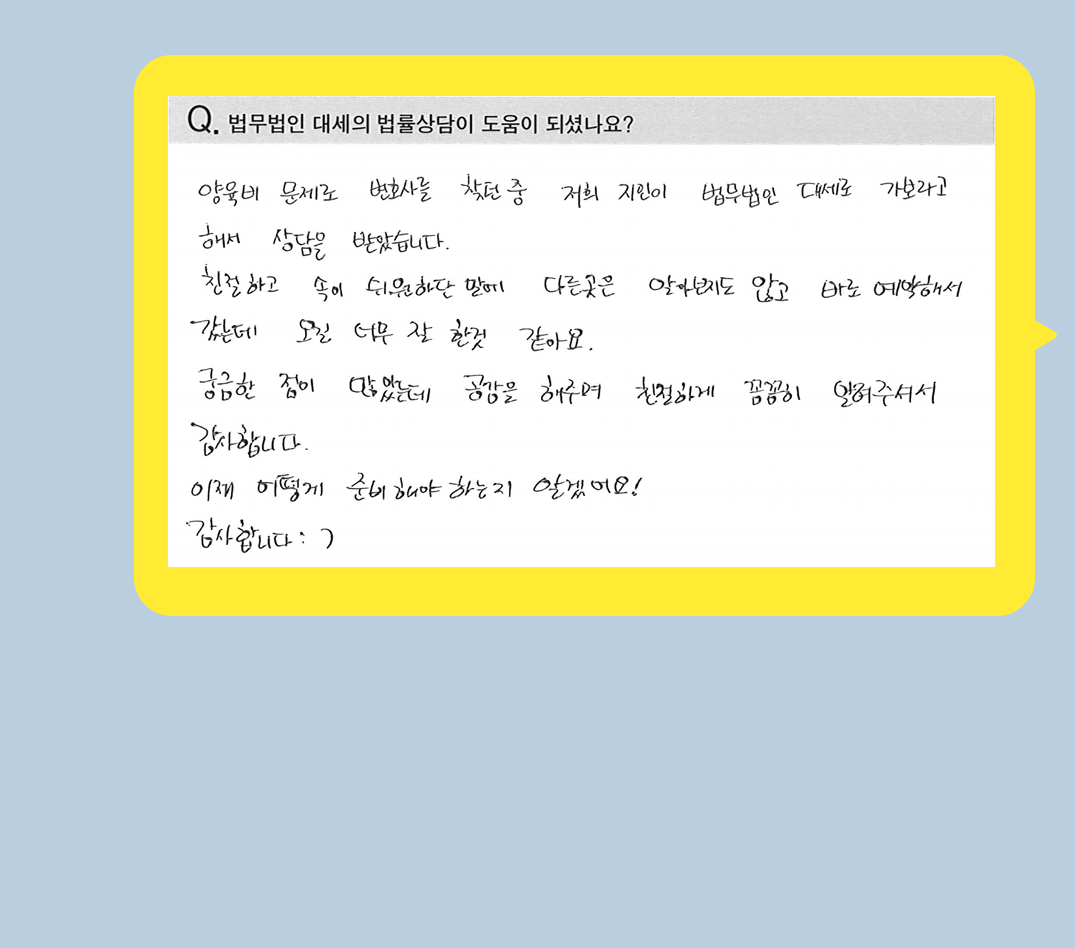 Q. 법무법인 대세의 법률상담이 도움이 되셨나요?
양육비 문제로 변호사를 찾던 중 저희 지인이 법무법인 대세로 가보라고
해서 상담을 받았습니다.
친절하고 속이 쉬원하단 말에 다른곳은 알아보지도 않고 바로 예약해서
갔는데 오길 너무 잘 한것 같아요.
궁금한 점이 많았는데 공감을 해주며 친절하게 꼼꼼히 알려주셔서
감사합니다.
이제 어떻게 준비해야하는지 알겠어요!
감사합니다 : )